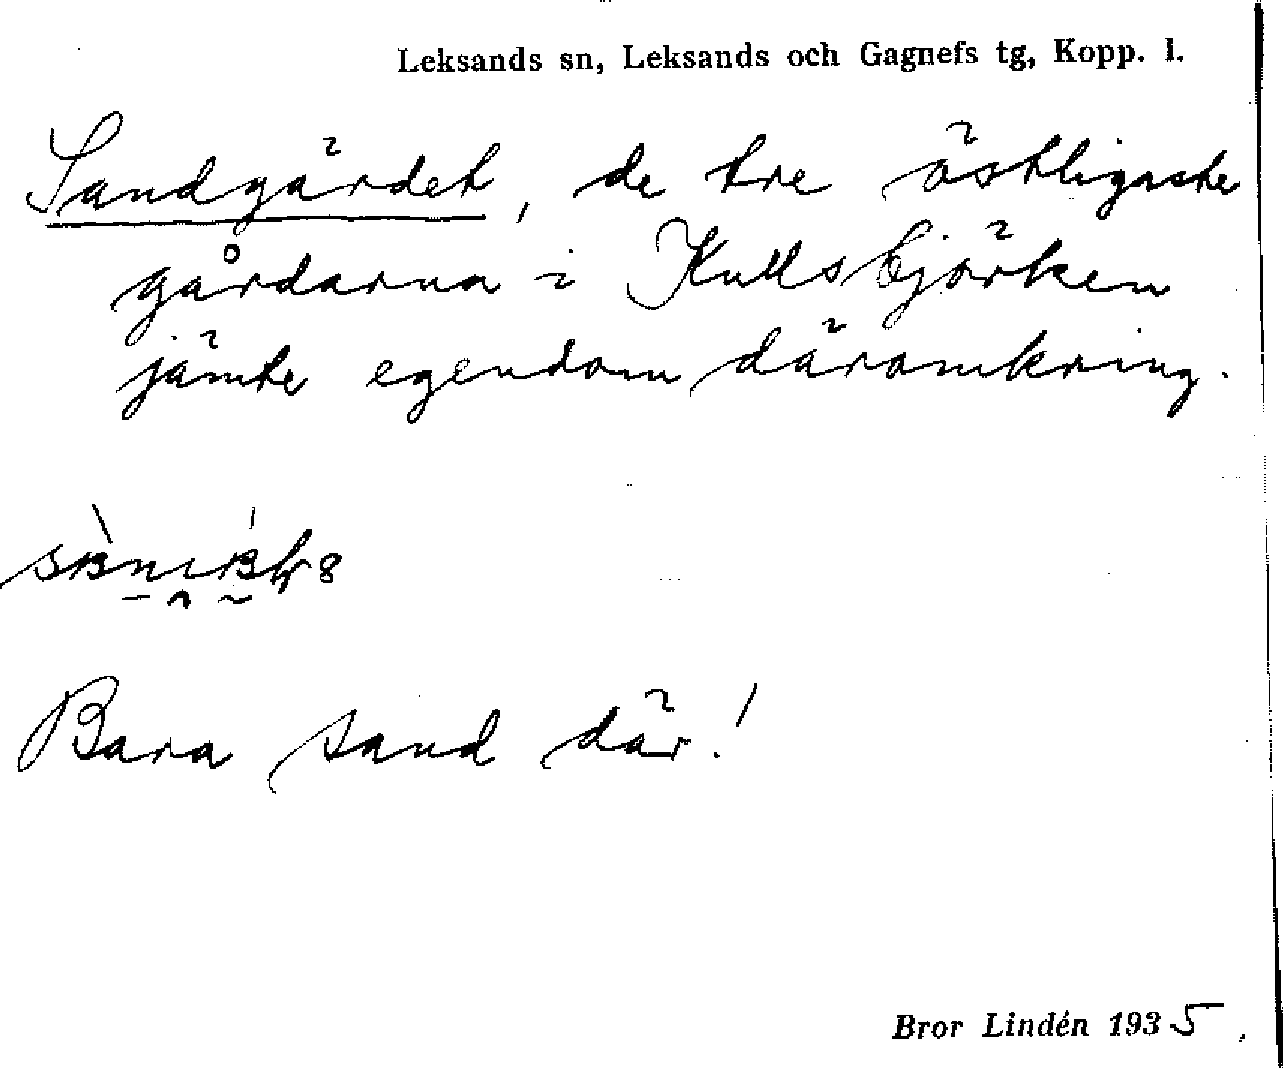 Leksands sn, Leksands och Gagnefs tg, Kopp. l.
Sandgärdet, de tre östligaste
gårdarna i Kullsbjörken
jämte egendom däromkring.
Bara sand där!
Bror Lindén 1935.